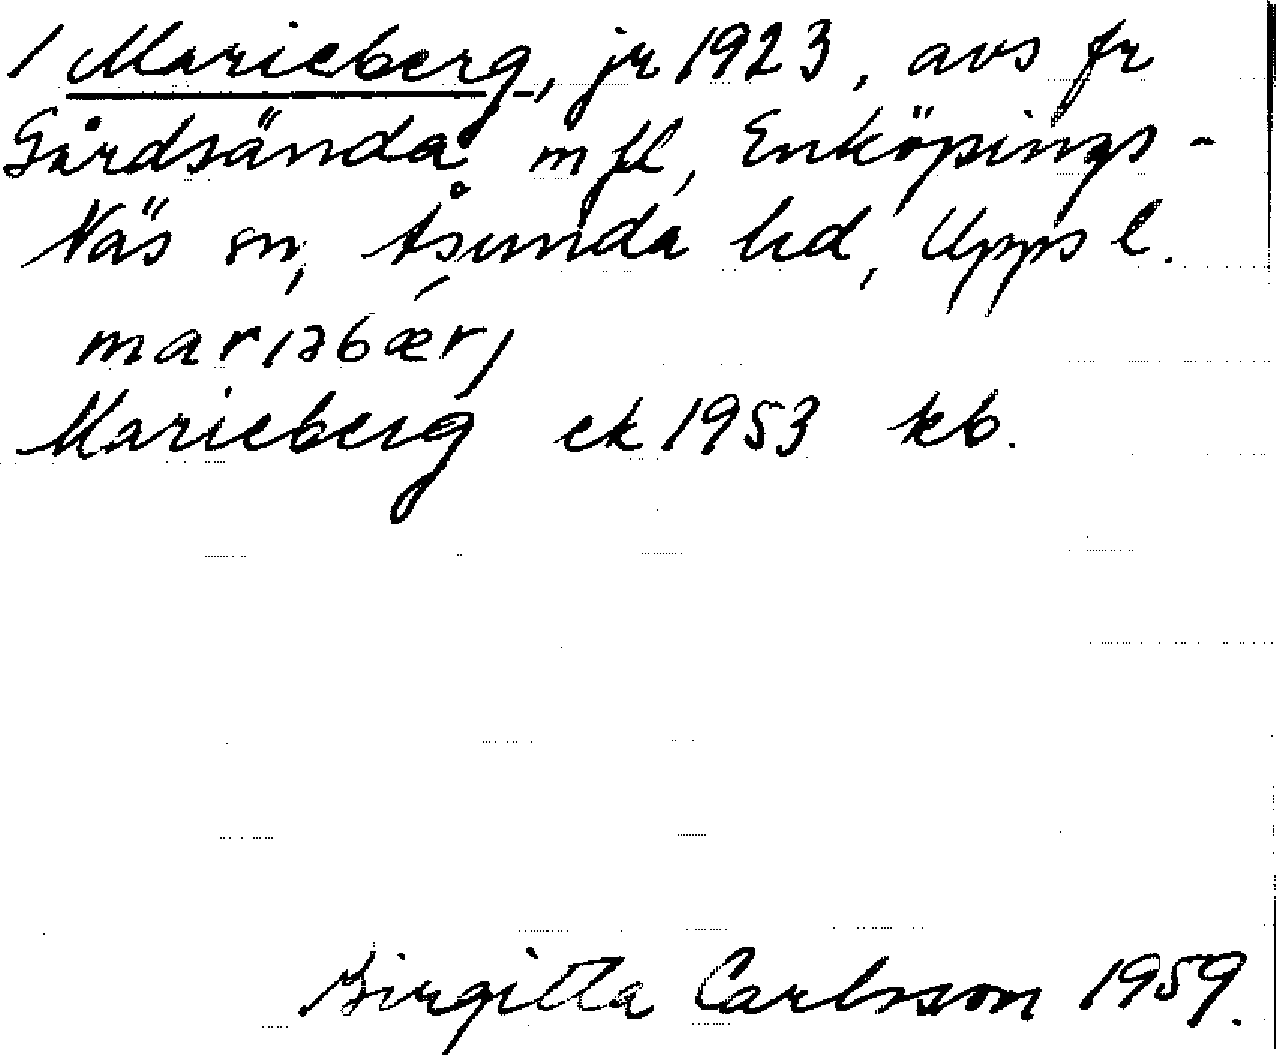 / Marieberg, jr 1923, avs fr
Gårdsända mfl, Enköpings-
Näs sn, Åsunda hd, Upps l.
marıəbær,j
Marieberg ek 1953 kb.
Birgitta Carlsson 1959.